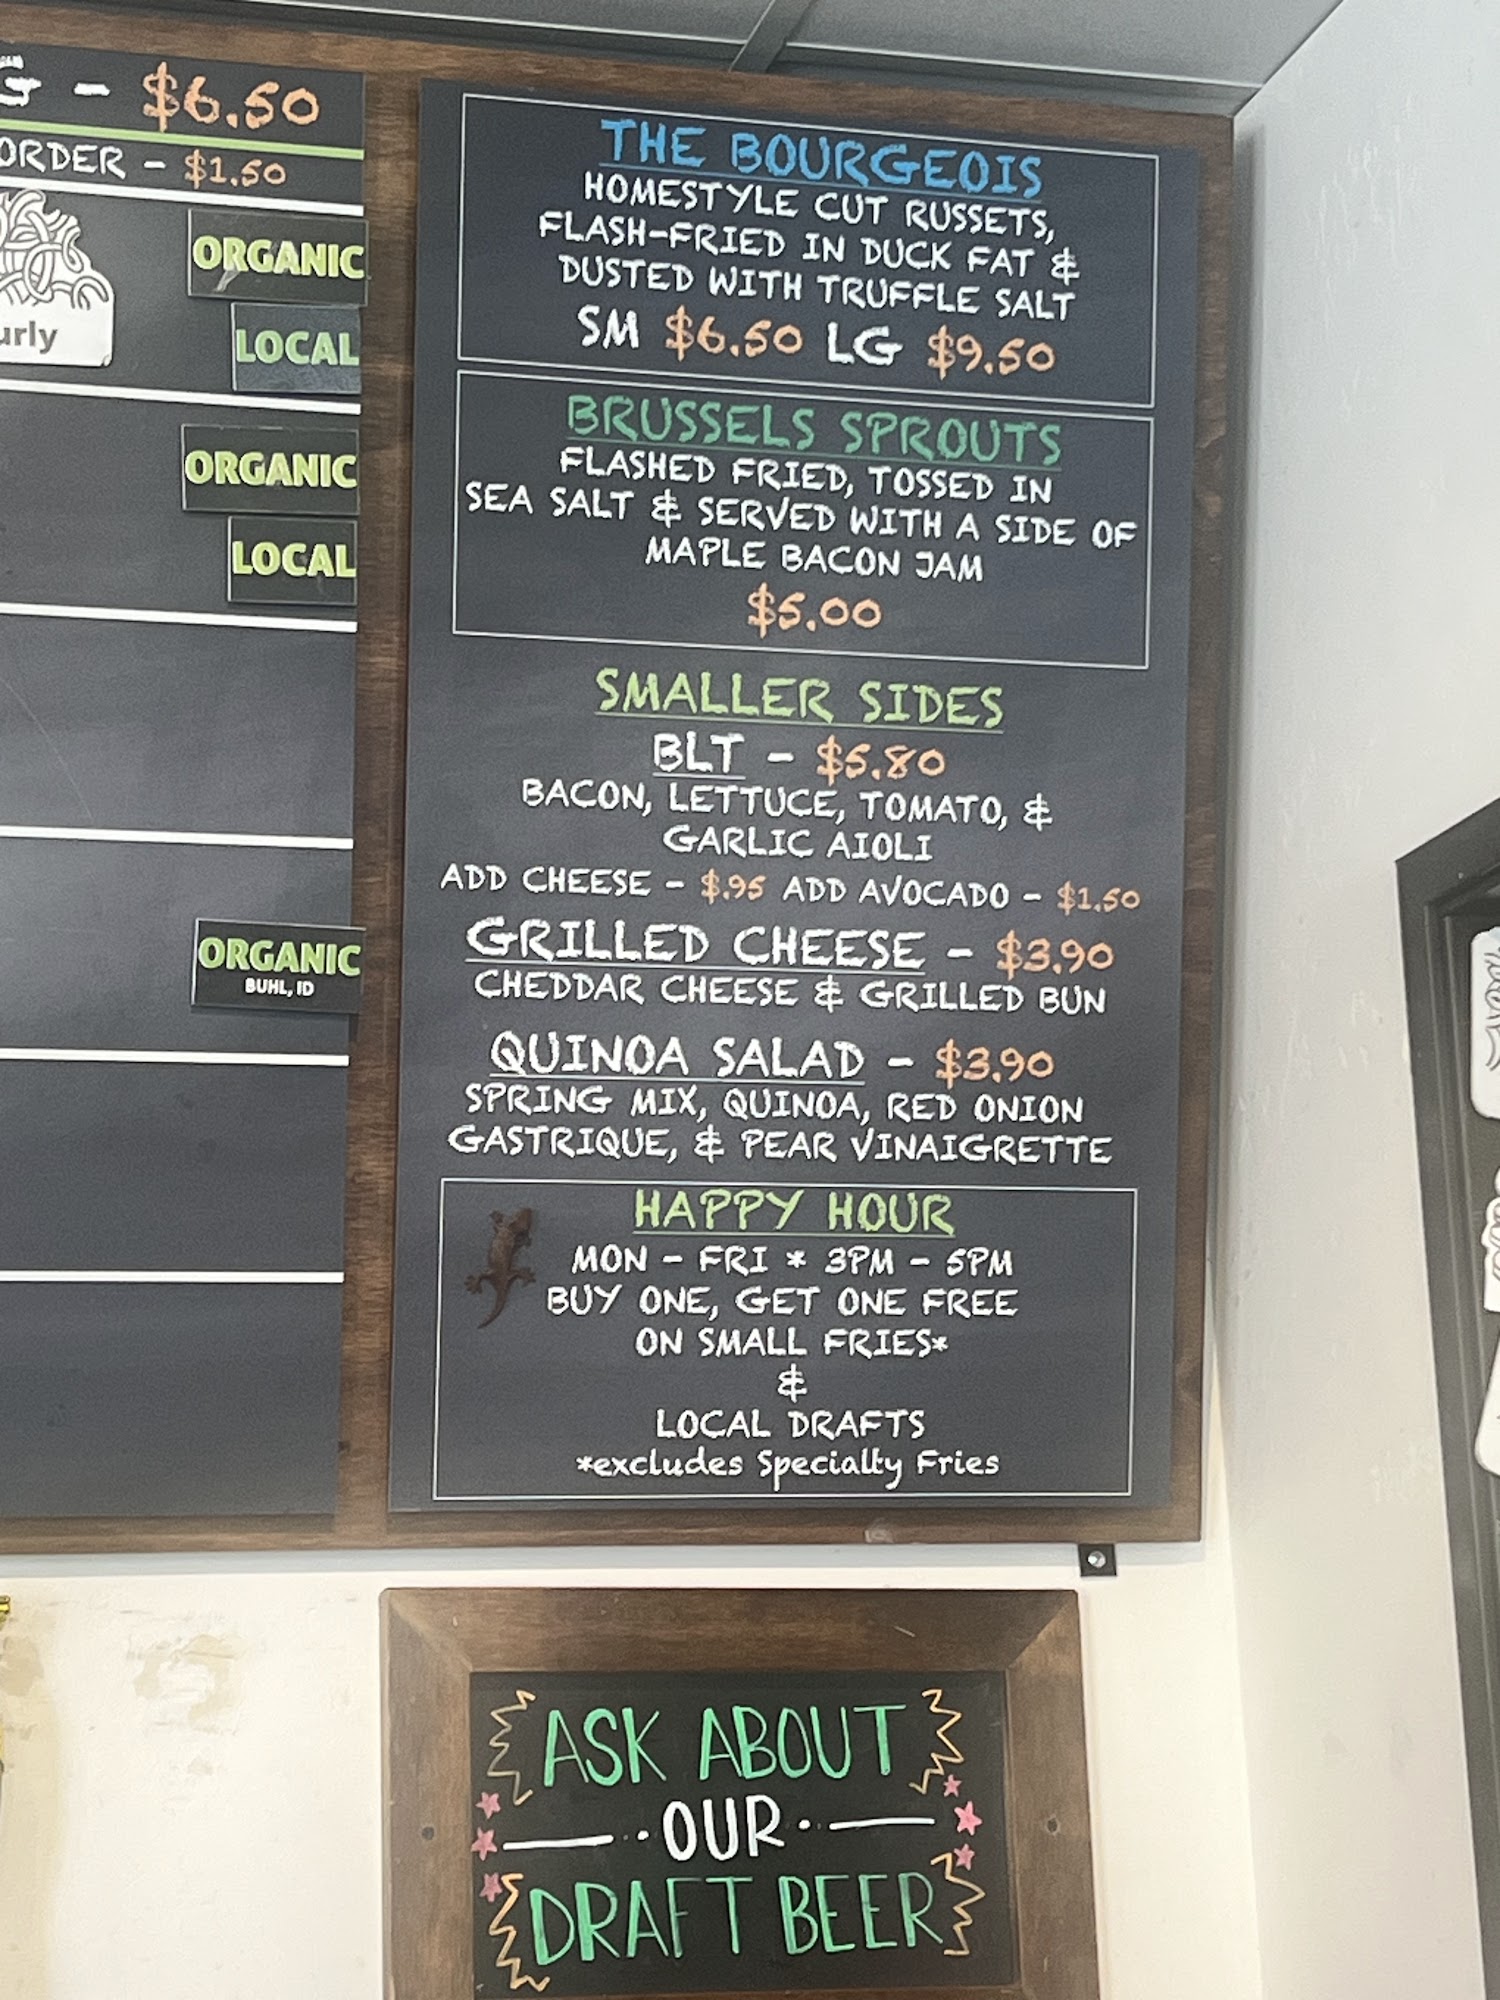 - $6.50
ORDER - $1.50
ORGANIC
LOCAL
ORGANIC
LOCAL
ORGANIC
BUHL, ID
THE BOURGEOIS
HOMESTYLE CUT RUSSETS,
FLASH-FRIED IN DUCK FAT &
DUSTED WITH TRUFFLE SALT
SM $6.50 LG $9.50
BRUSSELS SPROUTS
FLASHED FRIED, TOSSED IN
SEA SALT & SERVED WITH A SIDE OF
MAPLE BACON JAM
$5.00
SMALLER SIDES
BLT - $5.80
BACON, LETTUCE, TOMATO, &
GARLIC AIOLI
ADD CHEESE - $.95 ADD AVOCADO - $1.50
GRILLED CHEESE - $3.90
CHEDDAR CHEESE & GRILLED BUN
QUINOA SALAD - $3.90
SPRING MIX, QUINOA, RED ONION
GASTRIQUE, & PEAR VINAIGRETTE
HAPPY HOUR
MON - FRI * 3PM - 5PM
BUY ONE, GET ONE FREE
ON SMALL FRIES*
&
LOCAL DRAFTS
*excludes Specialty Fries
ASK ABOUT
OUR
DRAFT BEER